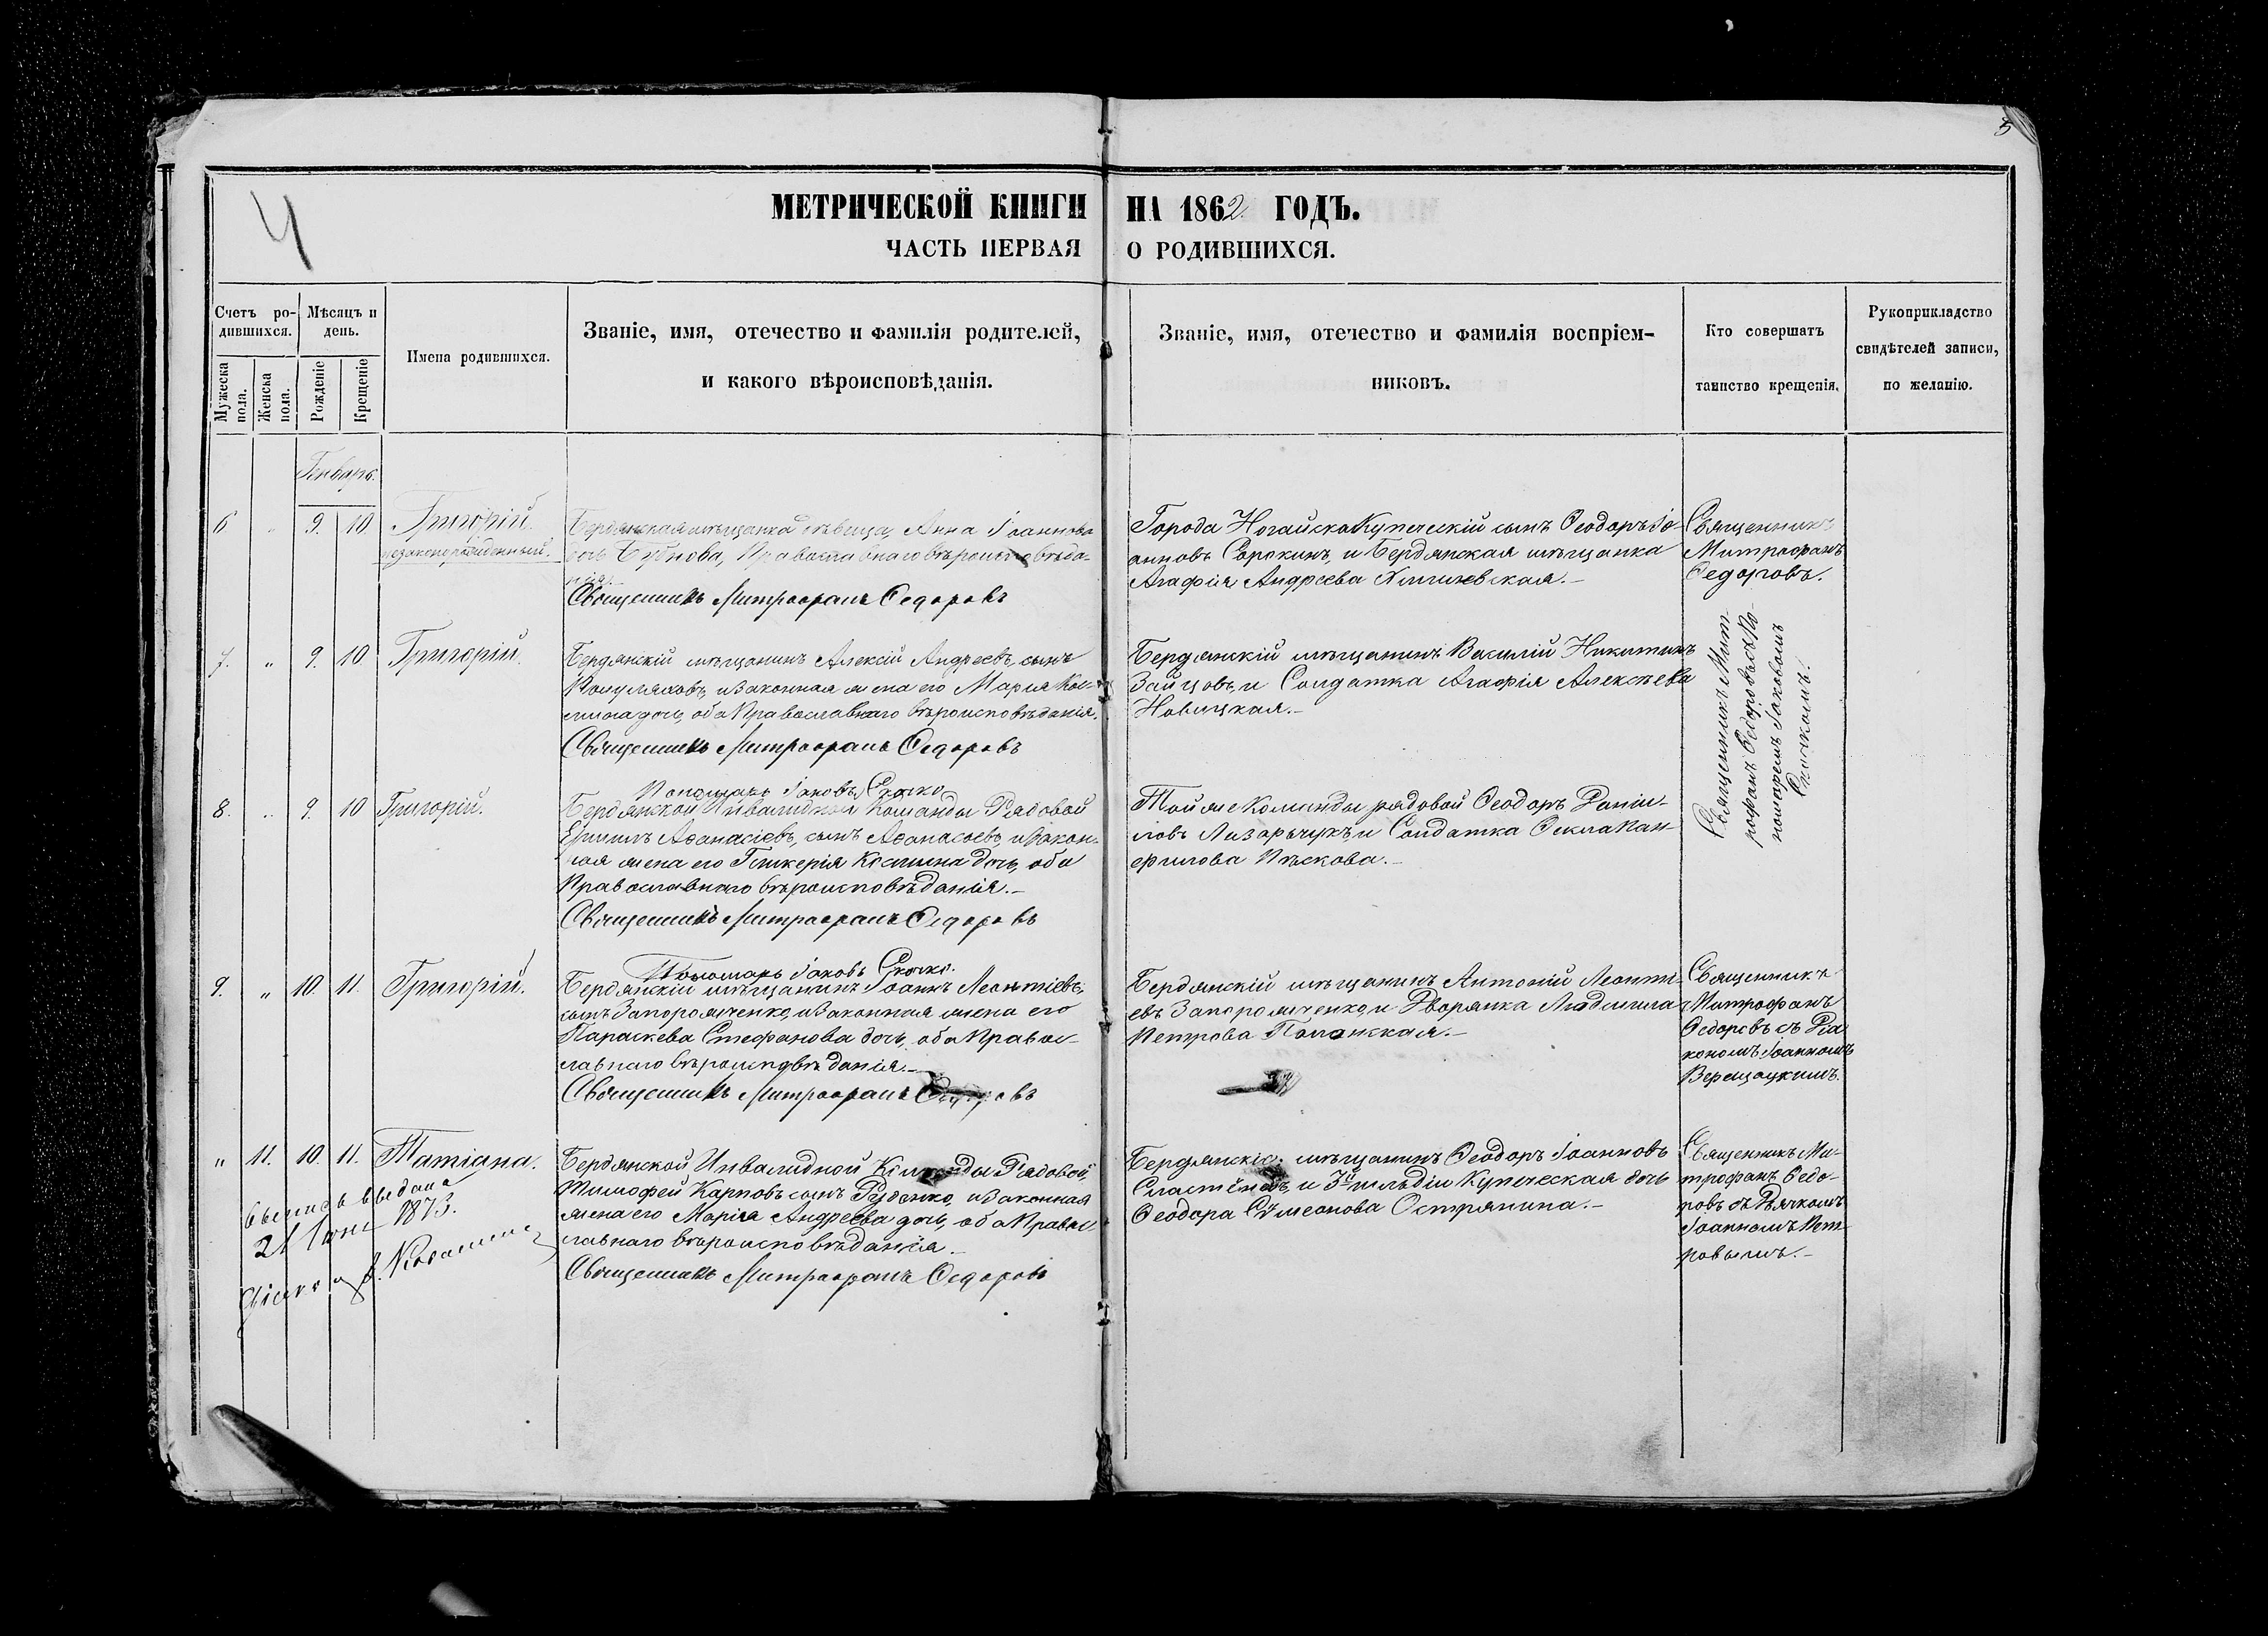 5
4
МЕТРИЧЕСКОЙ КНИГИ НА 1862 ГОДЪ.
ЧАСТЬ ПЕРВАЯ О РОДИВШИХСЯ.
Счетъ ро-
дившихся.
Мужеска
пола.
Женска
пола.
Мѣсяцъ и
день.
Рожденіе
Крещеніе
Имена родившихся.
Званіе, имя, отечество и фамилія родителей,
и какого вѣроисповѣданія.
Званіе, имя, отечество и фамилія воспріем-
никовъ.
Кто совершатъ
таинство крещенія.
Рукоприкладство
свидѣтелей записи,
по желанію.
Генварь.
6 " 9. 10. Григорій
незаконорожденный.
Бердянская мѣщанка дѣвица, Анна Іоаннова
дочь Бубнова, Православнаго вѣроисповѣда-
нія.
Священникъ Митрофанъ Федоровъ
Города Ногайска Купеческій сынъ Ѳеодоръ Іо-
анновъ Сорокинъ, и Бердянская мѣщанка
Агафія Андреева
Священникъ
Митрофанъ
Федоровъ.
7. " 9. 10. Григорій.
Бердянскій мѣщанинъ Алексій Андреевъ сынъ
и законная жена его Марія Кос-
мина дочь, оба Православнаго вѣроисповѣданія.
Священникъ Митрофанъ Федоровъ
Пономарь Іаковъ Сточко
Бердянскій мѣщанинъ Василій Никитинъ
Зайцовъ, и Солдатка Агафія Алексѣева
Новицкая.–
Священникъ Мит-
рофанъ Федоровъ съ По-
номаремъ Іаковомъ
Сточкомъ.
8. " 9. 10 Григорій.
Бердянской Инвалидной Команды Рядовой
Ефимъ Аѳанасіевъ, сынъ Аѳанасьевъ, и закон-
ная жена его Гликерія Космина дочь, оба
Православнаго вѣроисповѣданія.–
Священникъ Митрофанъ Федоровъ
Пономарь Іаковъ Сточко.
Той же Команды рядовой Ѳеодоръ Данiи-
ловъ Лазарьчукъ, и Солдатка Ѳекла Пан-
филова Пѣскова.–
9. " 10. 11. Григорій.
Бердянскій мѣщанинъ Іоаннъ Леонтіевъ
сынъ Запорожченко, и законная жена его
Параскева Стефанова дочь, оба Правос-
лавнаго вѣроисповѣданія.–
Священникъ Митрофанъ Федоровъ
Бердянскій мѣщанинъ Антоній Леонті-
евъ Запорожченко, и Дворянка Людмила
Петрова
Священникъ
Митрофанъ
Федоровъ съ Діа-
кономъ Іоанномъ
Верещацкимъ.
" 11. 10. 11. Татіана.
Бердянской Инвалидной Команды Рядовой,
Тимофей Карповъ сынъ Руденко, и законная
жена его Марія Андреева дочь, оба Правос-
лавнаго вѣроисповѣданія.–
Священникъ Митрофанъ Федоровъ
Бердянскій мѣщанинъ Ѳеодоръ Іоанновъ
Сластёновъ, и 3й гильдіи Купеческая дочь
Ѳеодора Сѵмеонова Острянина.–
Священникъ Ми-
трофанъ Федо-
ровъ съ Дьячкомъ
Іоанномъ Пет-
ровымъ.–
выпись выдана
21 1873.